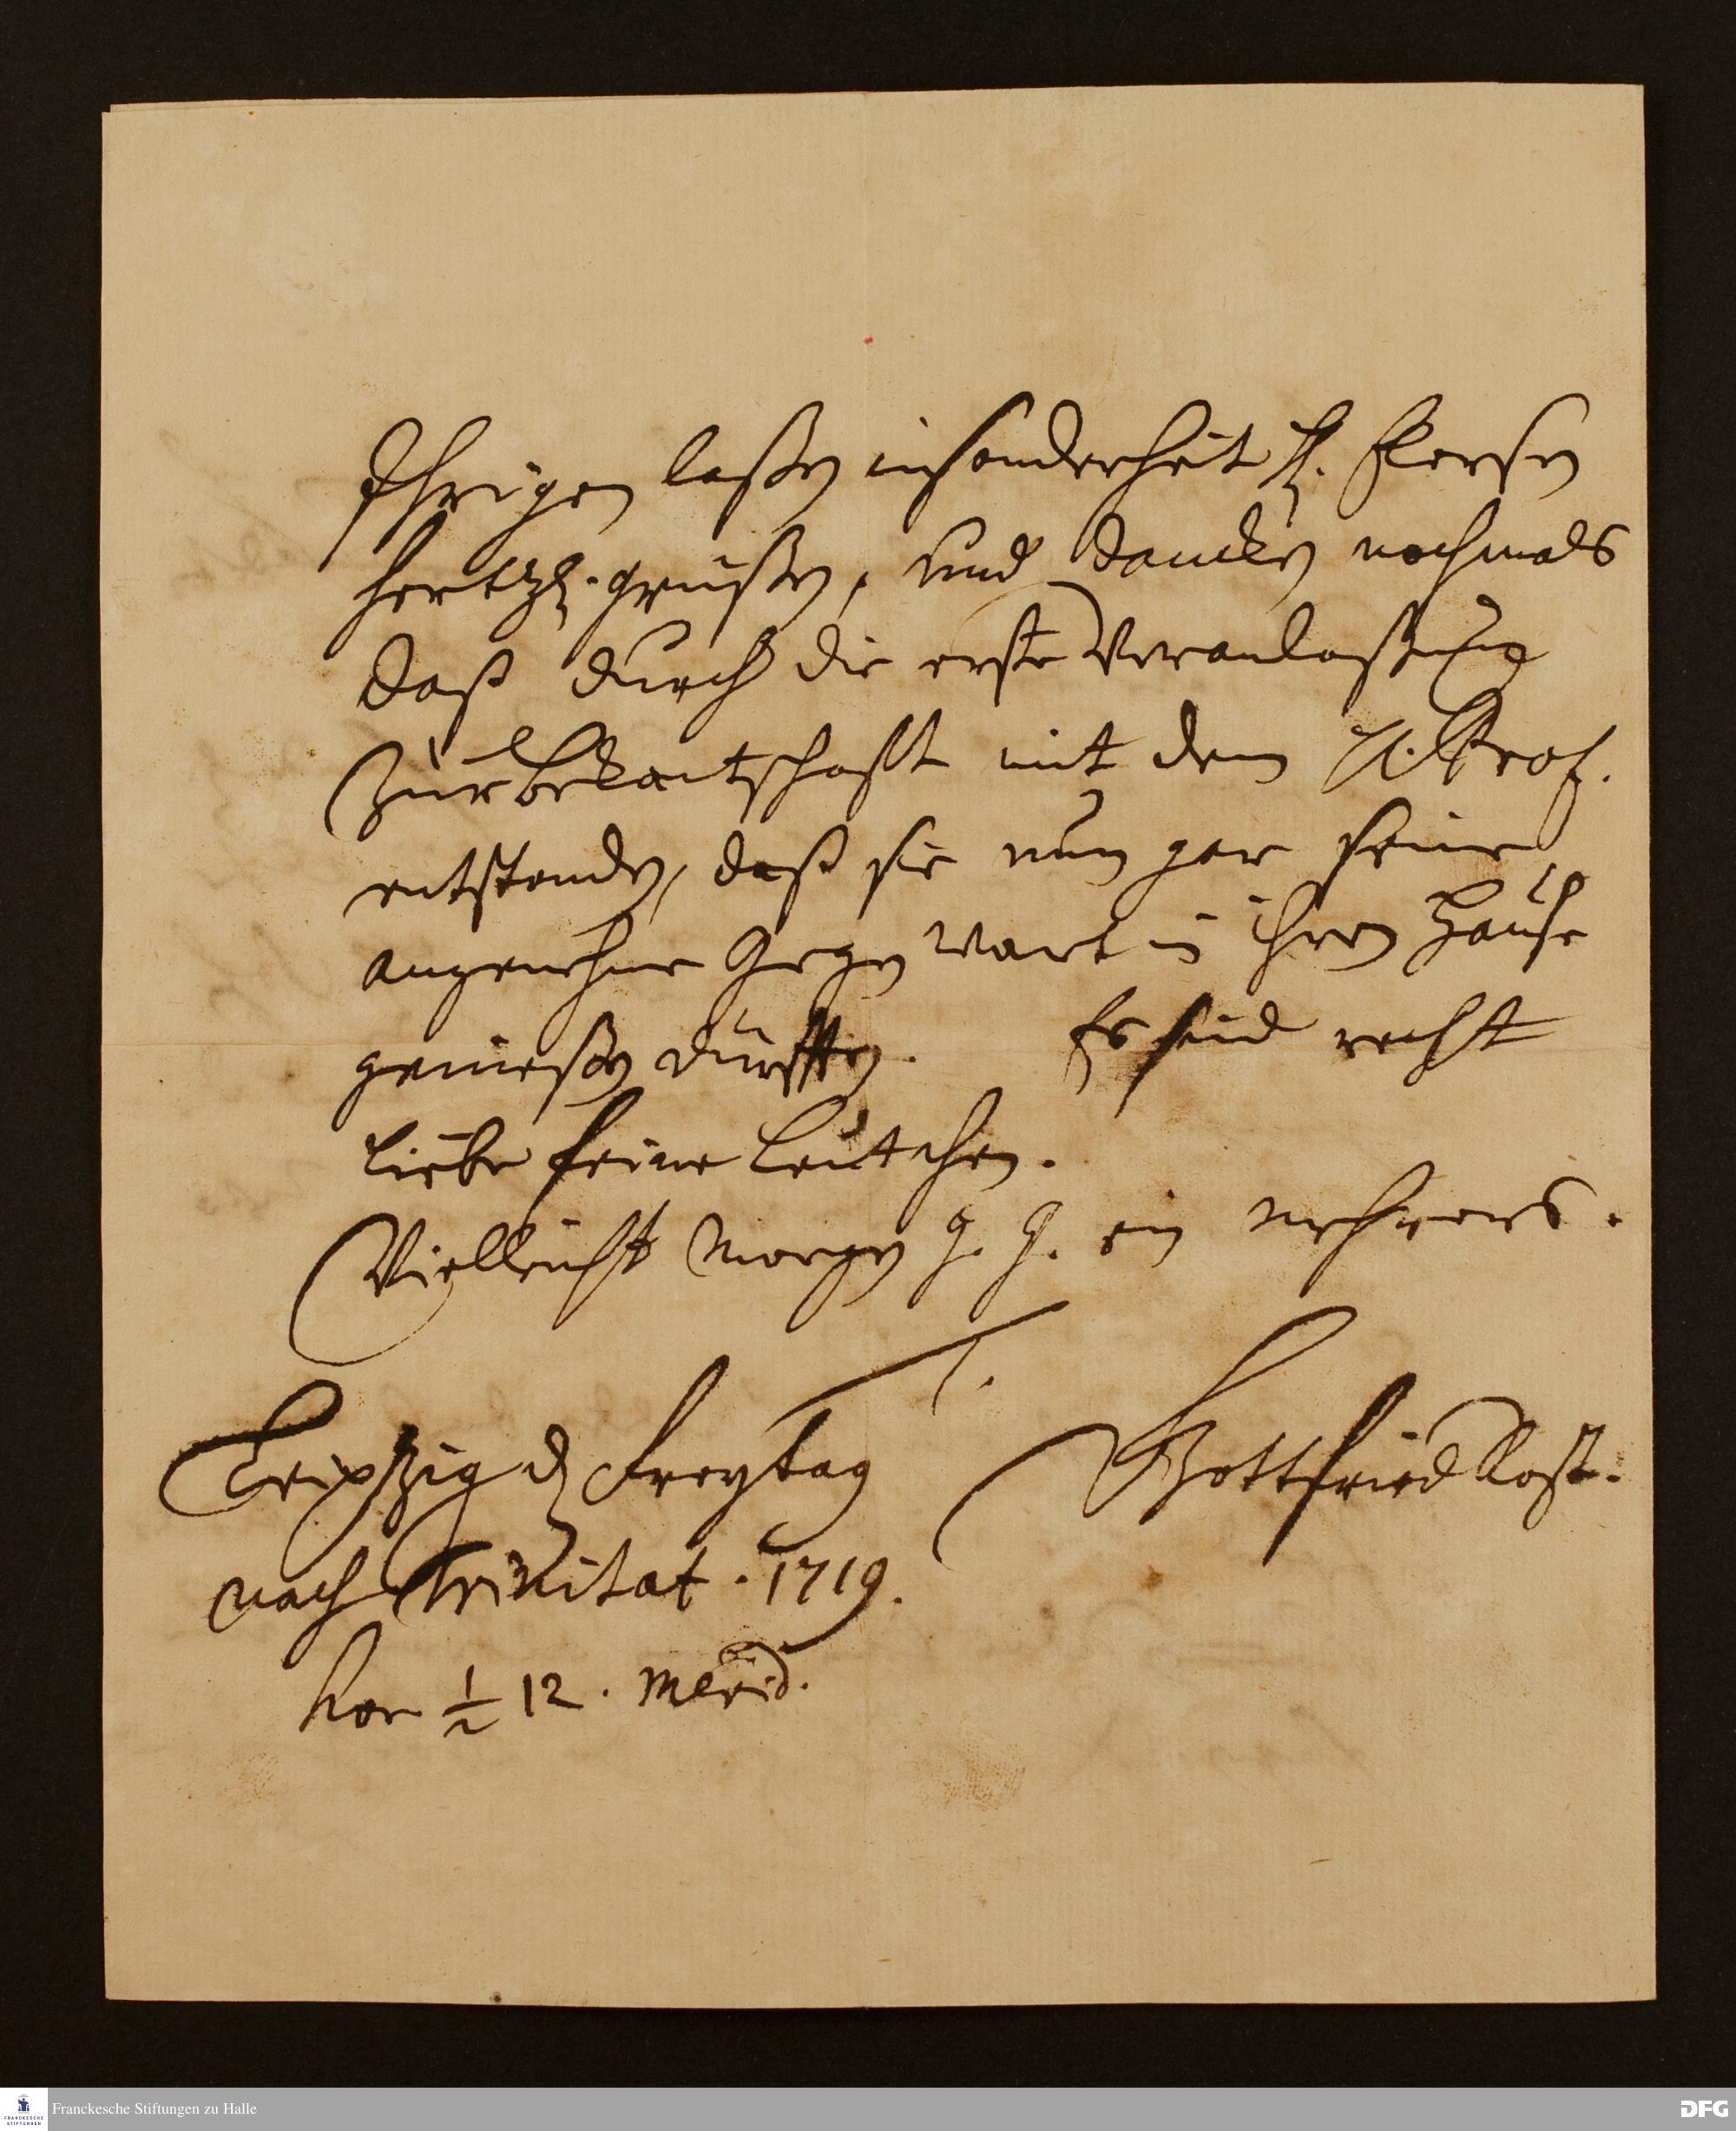 Ihrigen laßen insonderheit H. Persen
hertzl. grüßen, und dancken nochmals
daß durch die erste Veranlaßung
zur bekantschafft mit dem H. Prof.
entstanden, daß sie nun gar seine
angenehme Gegenwart in ihren Hause
genießen dürfften. Es sind recht
liebe feine Leutchen.
Vielleicht Morgen g. G. ein mehrers.
Leipzig d. Freytag
Gottfried Kost.
nach Trinitat. 1719.
hor ½ 12. merid.
Franckesche Stiftungen zu Halle
DFG